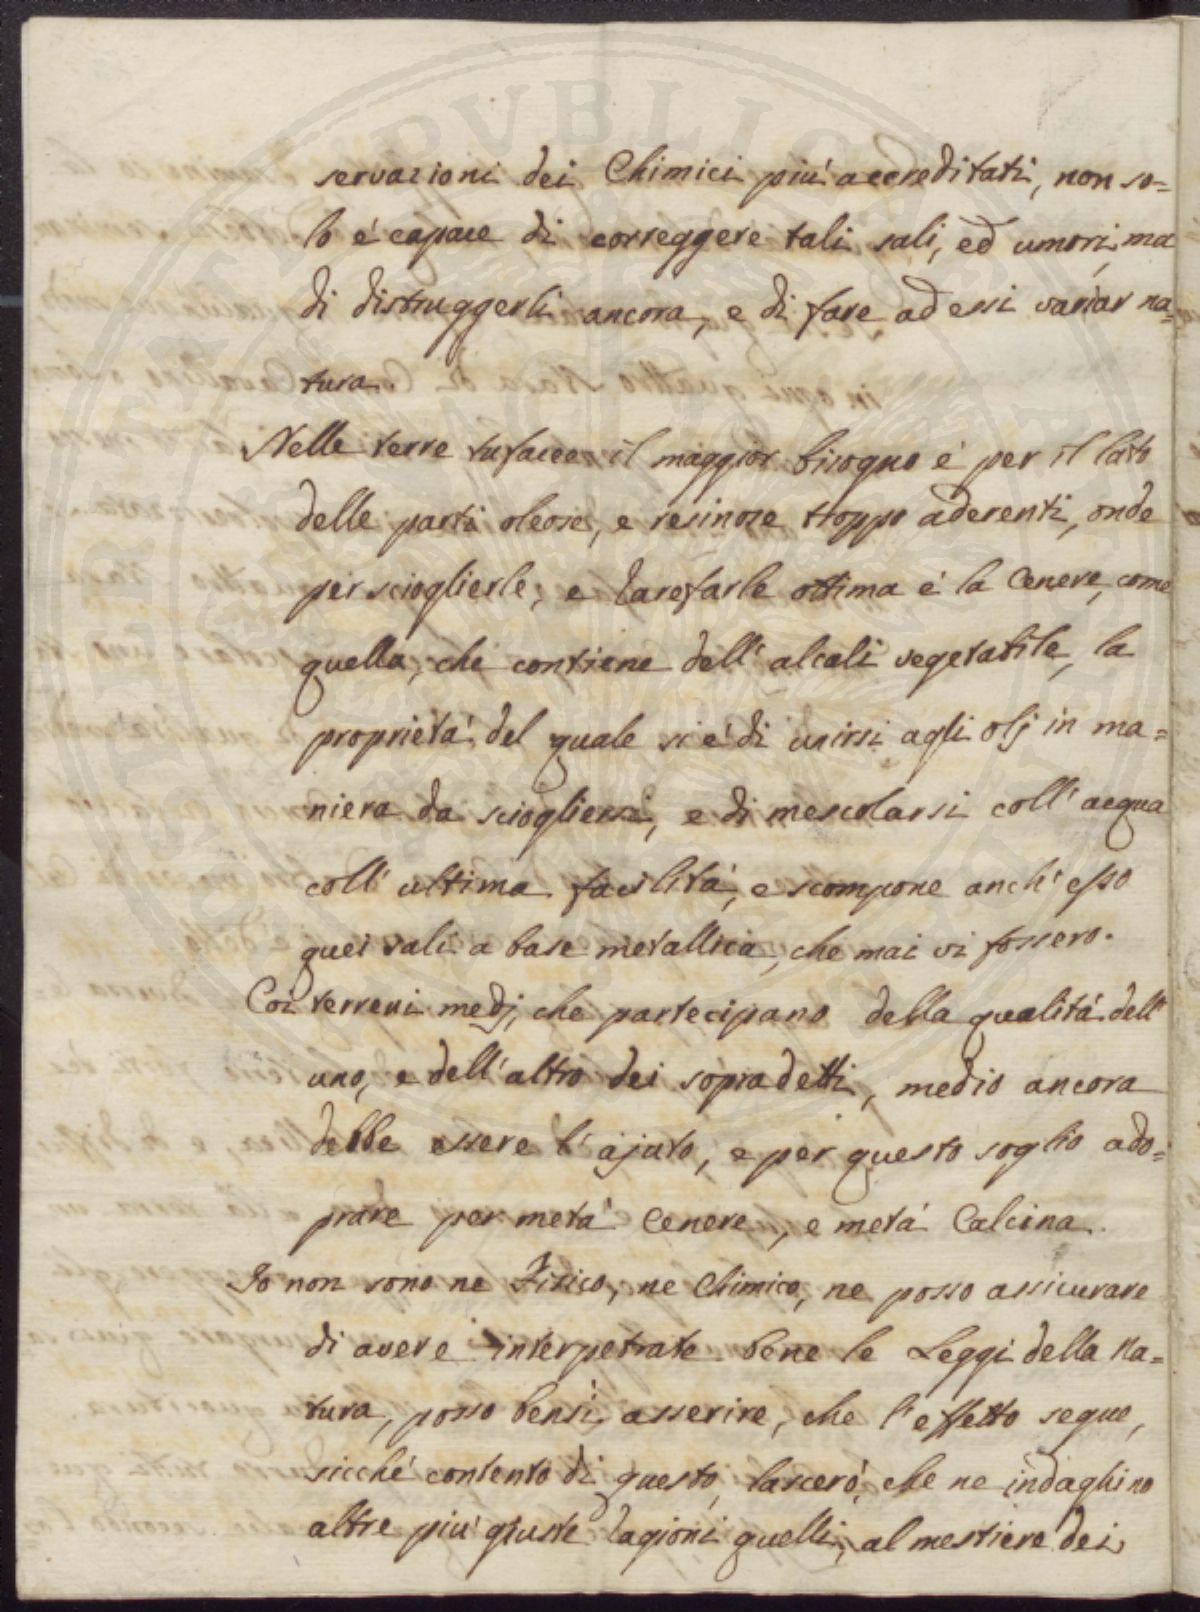 servazioni dei Chimici più accreditati, non so=
lo é capace di correggere tali sali, ed umori, ma
di distruggerli ancora, e di fare ad essi variar na=
tura.
Nelle terre tufacee il maggior bisogno é per il lato
delle parti oleose, e resinose troppo aderenti, onde
per scioglierle, e rarefarle ottima é la Cenere, come
quella, che contiene dell' alcali vegetabile, la
proprietá del quale si é di unirsi agli olj in ma=
niera da sciogliersi, e di mescolarsi coll' acqua
coll' ultima facilitá, e scompone anch' esso
quei sali a base metallica, che mai vi fossero.
Coi terreni medj, che partecipano della qualitá dell'
uno, e dell' altro dei sopradetti, medio ancora
debbe essere l' ajuto, e per questo soglio ado=
prare per metá Cenere, e metá Calcina.
Io non sono ne Fisico, ne Chimico, ne posso assicurare
di avere interpetrate bene le Leggi della Na=
tura, posso bensì asserire, che l' effetto segue,
sicché contento di questo, lasceró, che ne indaghino
altre piú giuste ragioni quelli, al mestiere dei